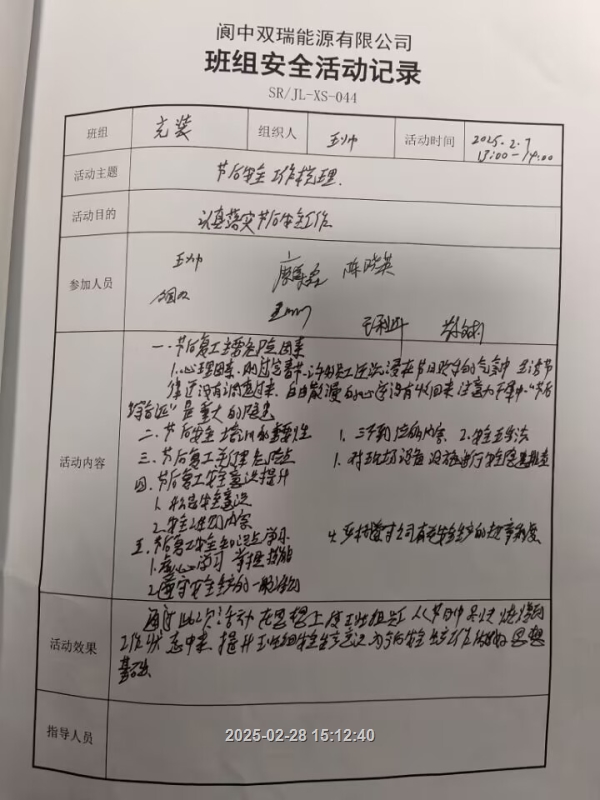 阆中双瑞能源有限公司
班组安全活动记录
SR/JL-XS-044
班组 充装 组织人 王帅 活动时间 2025.2.7
13:00-14:00
活动主题 节后安全工作梳理.
活动目的 认真落实节后安全工作
参加人员 王帅 陈晓英
活动内容
一.节后复工主要危险因素
1.心理因素.刚过完春节.许多员工还沉浸在节日欢乐的气氛中 生活节
律还没有调整过来.自由散漫的心还没有收回来 注意力不集中."节后
综合症"是重大的隐患
二.节后安全培训的重要性 1.三不到位的内容 2.安全五步法
三.节后复工 危险点 1.对现场设备设施进行安全隐患排查
四.节后复工安全意识提升
1.
安全意识
2.安全 内容
五.节后复工安全知识点学习 公司有关安全生产的规章制度
1.虚心学习 掌握技能
2.遵守安全生产的一般
活动效果 通过此次活动 在思想上使 从节日中
工作状态中来.提升 安全生产意识 为今后安全生产工作 思想
基础
指导人员
2025-02-28 15:12:40